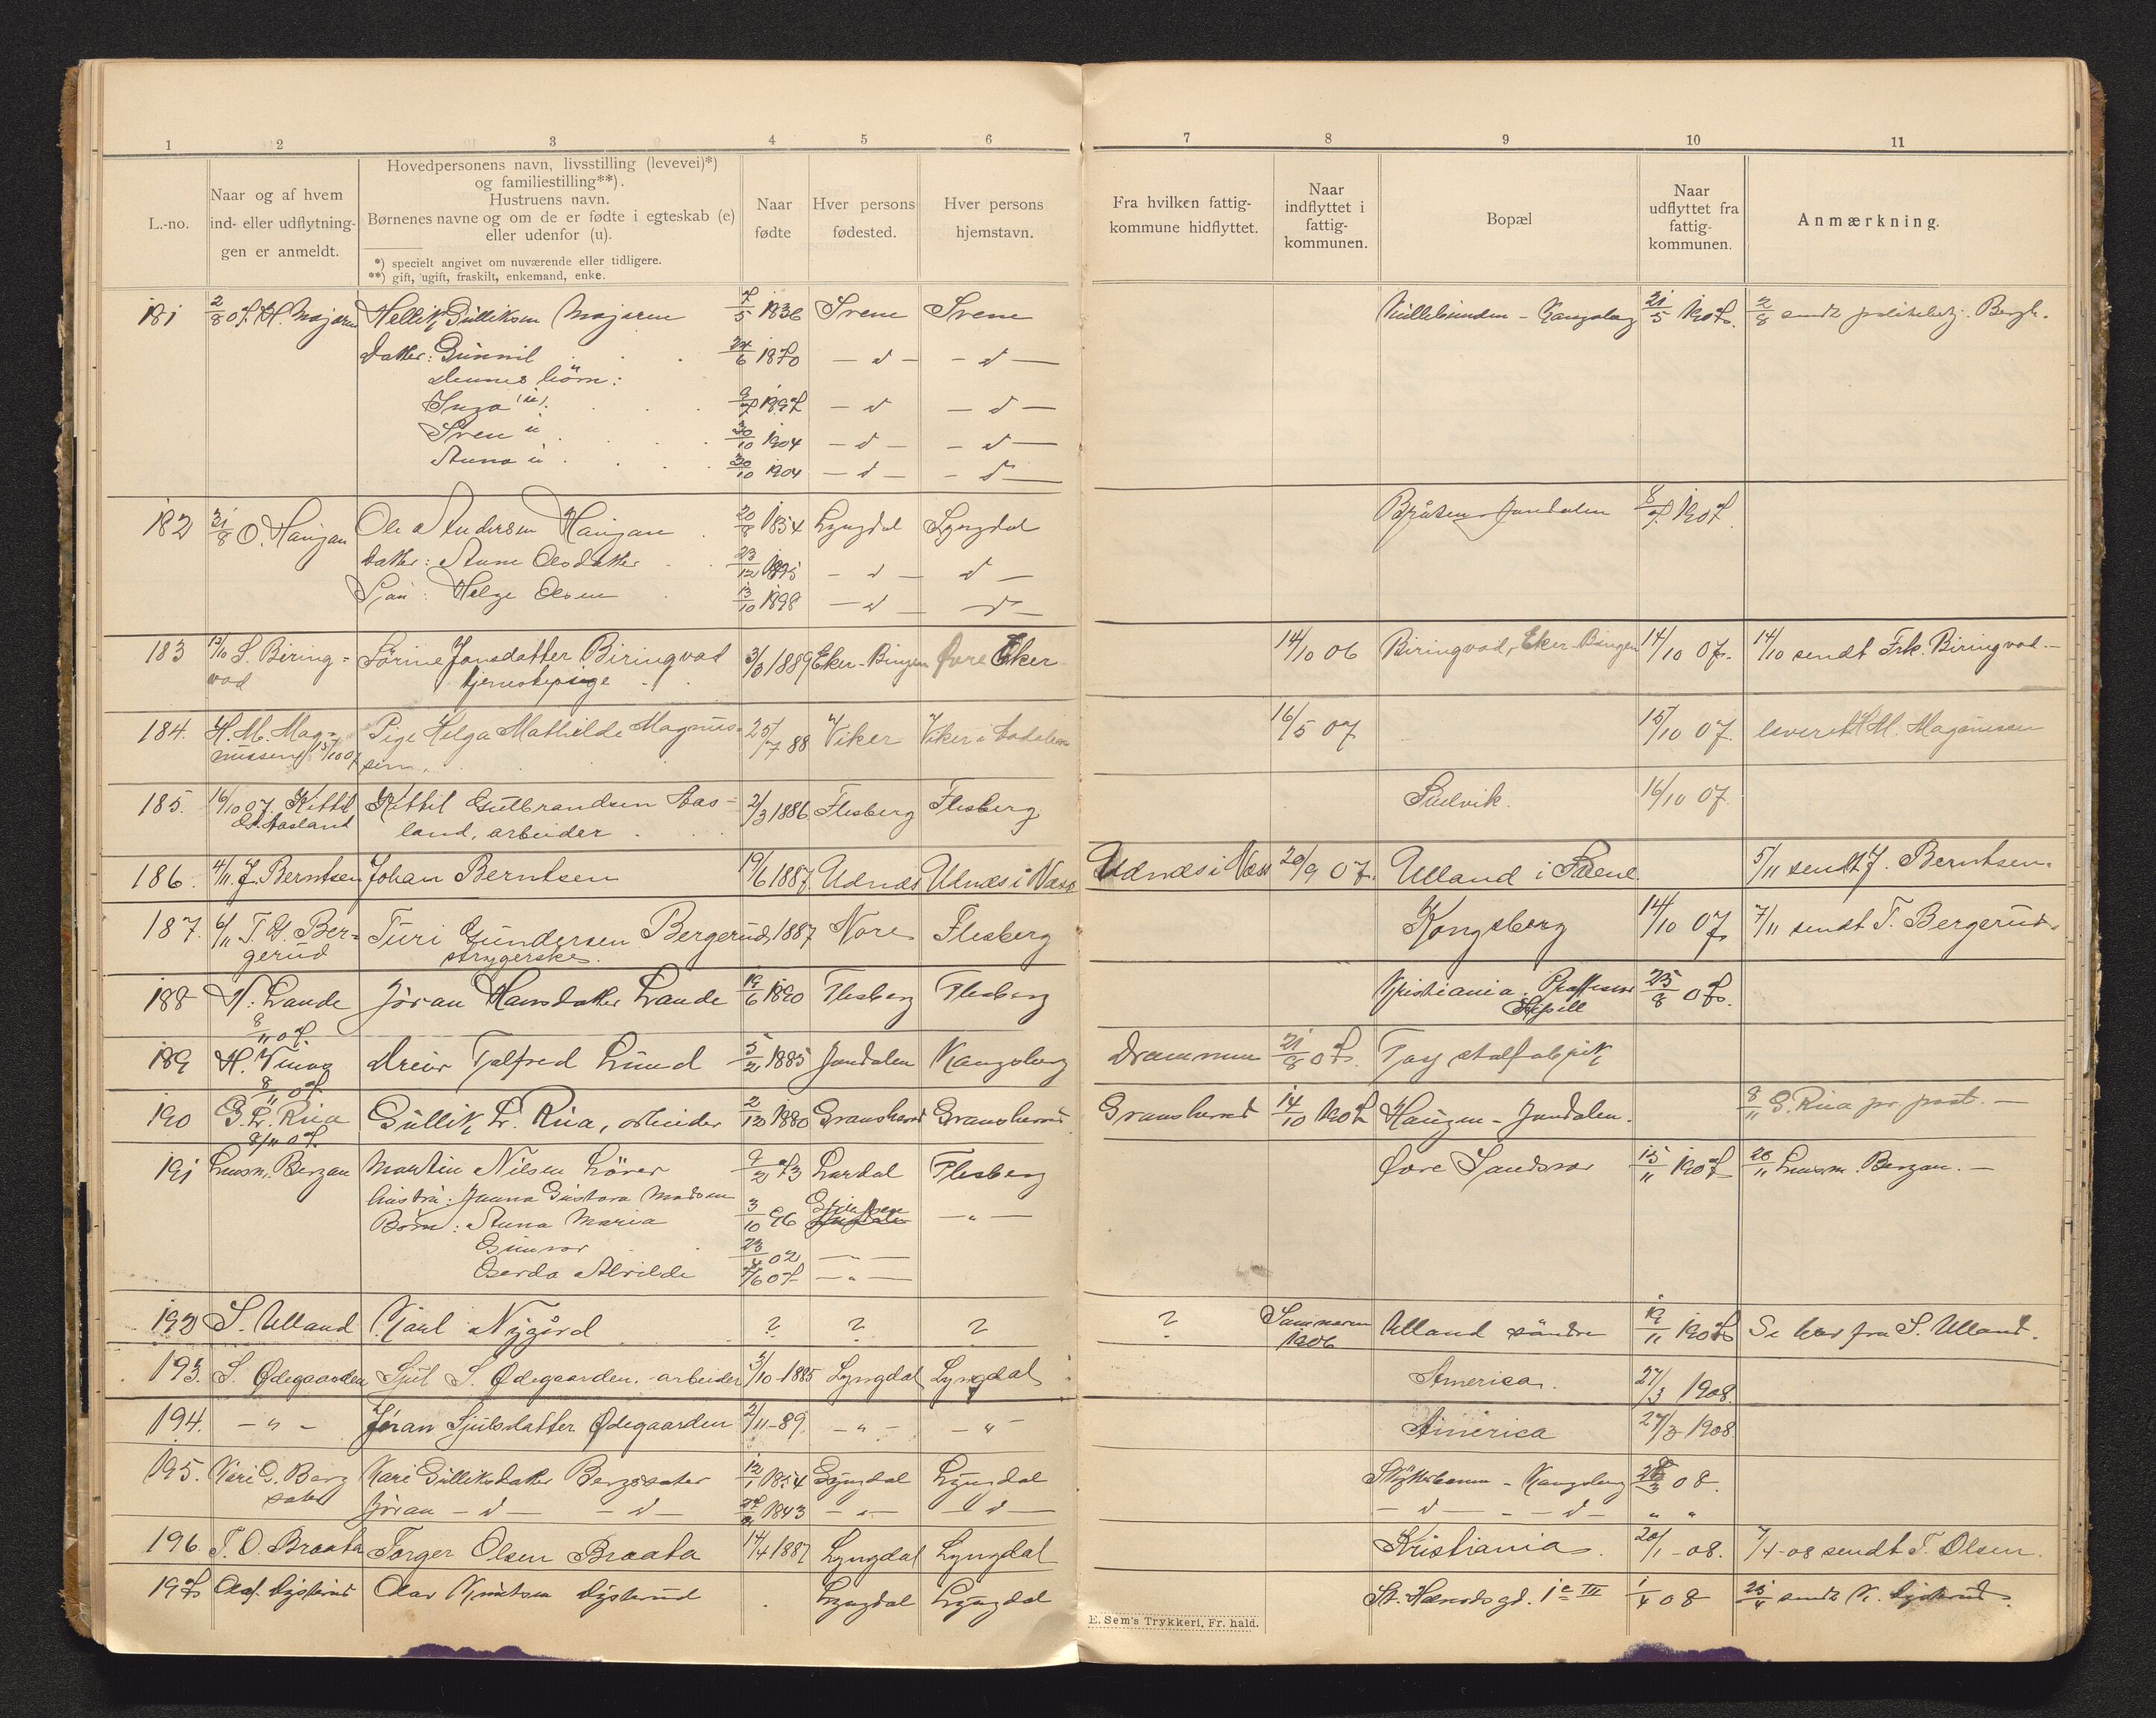 1 2 3 4 5 6 7 8 9 10 11
L.-no.
Naar og af hvem
ind- eller udflytnin-
gen er anmeldt.
Hovedpersonens navn, livsstilling (levevei)*)
og familiestilling**).
Hustruens navn.
Børnenes navne og om de er fødte i egteskab (e)
eller udenfor (u).
*) specielt angivet om nuværende eller tidligere.
**) gift, ugift, fraskilt, enkemand, enke.
Naar
fødte
Hver persons
fødested.
Hver persons
hjemstavn.
Fra hvilken fattig-
kommune hidflyttet.
Naar
indflyttet i
fattig-
kommunen.
Bopæl
Naar
udflyttet fra
fattig-
kommunen.
Anmærkning.
181 2/8 07. H. Mojaren Hellik Gulliksen Mojaren 7/5 1836 Svene Svene Kongsberg 21/5 1907. 2/8 sendt
Datter: Gunnil 24/6 1870 – d – – d –
Dennes børn:
Inga (u). 9/7 1897 – d – d –
Sven u 30/10 1904 – d – – d –
Anna u 30/10 1904 – d – – d –
182 31/8 O. Haugan Ole Andersen Haugan 20/8 1854 Lyngdal Lyngdal Bråten Jondalen 8/7 1907.
Datter: Anne Olsdatter 23/12 1895 – d – d –
Søn: Helge Olsen 13/10 1898 – d – d –
183 12/10 S. Biring= Sørine Jonsdatter Biringvad 3/3 1889 Eker-Bingen Øvre Eker 14/10 06 Biringvad, Eker-Bingen 14/10 07. 14/10 sendt Frk. Biringvad.–
vad tjenestepige
184. H. M. Mag= Pige Helga Mathilde Magnus= 25/7 88 Viker Viker i Aadalen 16/5 07 15/10 07. leveret H. M. Magnussen
nussen 15/10 07 sen.
185. 16/10 07. Kittil Kittil Gulbrandsen Aas= 2/3 1886 Flesberg Flesberg Sulvik. 16/10 07.
G. Aasland land, arbeider
186. 4/11. J. Berntsen Johan Berntsen 19/6 1887. Udnes Udnes i Næs Udnes i Næs 20/9 07. Ulland i Svene 5/11 sendt J. Berntsen.
187. 6/11 T. G. Ber= Turi Gundersen Bergerud, 1887 Nore Flesberg Kongsberg 14/10 07 7/11 sendt T. Bergerud.
gerud strygerske.
188 N. Lande Jøran Hansdatter Lande 19/6 1890 Flesberg Flesberg Kristiania. Professor 25/8 07.
8/11 07.
189 H. Tunog Dreier Tolfred Lund 5/2 1885 Jondalen Kongsberg Drammen 21/8 07. Tog stolfabrik
8/11 07
190 G. L. Rua Gullik L. Rua, arbeider 2/12 1880 Gransherad Gransherad Gransherad 14/10 1907 Haugen – Jondalen. 8/11 G. Rua pr. post. –
8/11 07.
191 Lensm. Bergan Martin Nilsen Lører 9/2 73 Lardal Flesberg Øvre Sandsvær 15/11 1907 26/11 Lensm. Bergan. –
Hustru: Janna Gustava Madsen
Børn: Anna Maria 3/10 96 – „ –
Gunvor 23/4 02 – „ –
Gerda Alvilde 7/6 07 – „ –
192 S. Ulland Karl Nygård ? ? ? ? Sommeren Ulland søndre 19/11 1907 Se brev fra S. Ulland.
1906
193. S. Ødegaarden Sjul S. Ødegaarden. arbeider 5/10-1885 Lyngdal Lyngdal America. 27/3 1908.
194. – „ – Jøran Sjulsdatter Ødegaarden 2/11-89. – „ – – „ – America 27/3 1908.
195. Kari G. Berg Kari Gulliksdatter Bergsæter 12/1 1854 Lyngdal Lyngdal Kongsberg 28/3 08.
sæter Jøran – d – – d – 1843 – „ – – d – – d – – d – „ „
196. T. O. Braata Torger Olsen Braata 14/4 1887 Lyngdal Lyngdal Kristiania. 20/1-08. 7/4-08 sendt T. Olsen.
197. Olaf. Dysterud Olav Knutsen Dysterud Lyngdal Lyngdal St. Hansdsgd. 1e III 1/4 08 25/4 sendt K. Dysterud.
E. Sem's Trykkeri, Fr.hald.